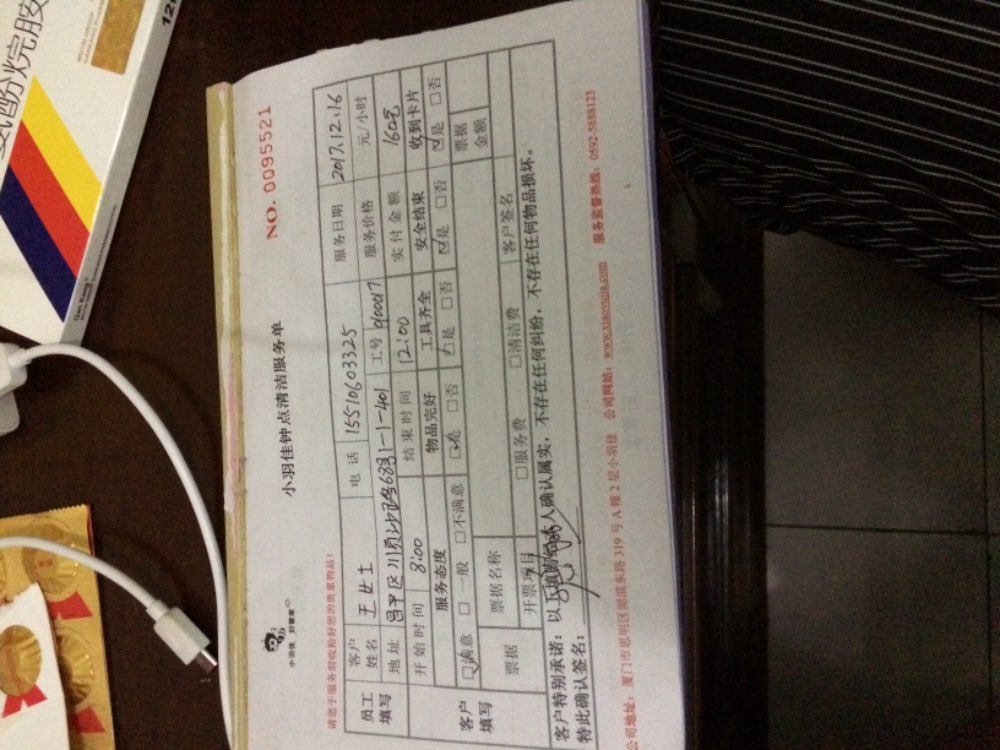 小羽佳 好管家
小羽佳钟点清洁服务单
NO. 0095521
请您于服务前收拾好您的贵重物品!
员工填写
客户姓名 王女士 电话 15510603325 服务日期 2017.12.16
地址 昌平区 6831-1-401 工号 服务价格 元/小时
开始时间 8:00 结束时间 12:00 实付金额 160元
客户填写
服务态度 物品完好 工具齐全 安全结束 收到卡片
☑满意 □一般 □不满意 ☑是 □否 ☑是 □否 ☑是 □否 ☑是 □否
票据 票据名称 票据金额
开票项目 □服务费 □清洁费 客户签名
客户特别承诺:以上填写经本人确认属实,不存在任何纠纷,不存在任何物品损坏。
特此确认签名:
公司地址:厦门市思明区湖滨东路 319 号 A 幢 2 层小羽佳 公司网站:www.xiaoyujia.com 服务监督热线:0592-5888123
酚烷胺
12